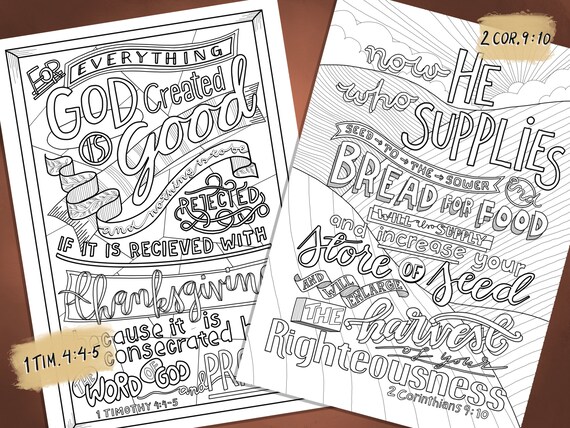 FOR EVERYTHING
GOD Created
is Good
and nothing is to be
REJECTED
IF IT IS RECIEVED WITH
Thanksgiving
cause it is
consecrated
WORD of GOD
and
1 TIMOTHY 4:4-5
1 TIM. 4:4-5
2 COR. 9:10
now HE
who SUPPLIES
SEED TO THE SOWER and
BREAD FOR FOOD
WILL SUPPLY
and increase your
store OF seed
AND WILL ENLARGE
THE harvest
of your
Righteousness
2 Corinthians 9:10